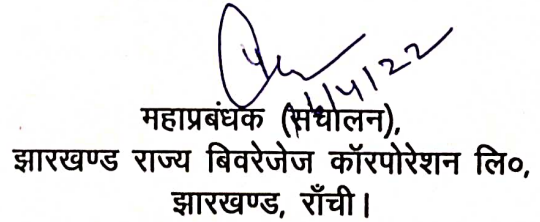 महाप्रबंधक (संचालन),
झारखण्ड राज्य बिवरेजेज कॉरपोरेशन लि०,
झारखण्ड, राँची।